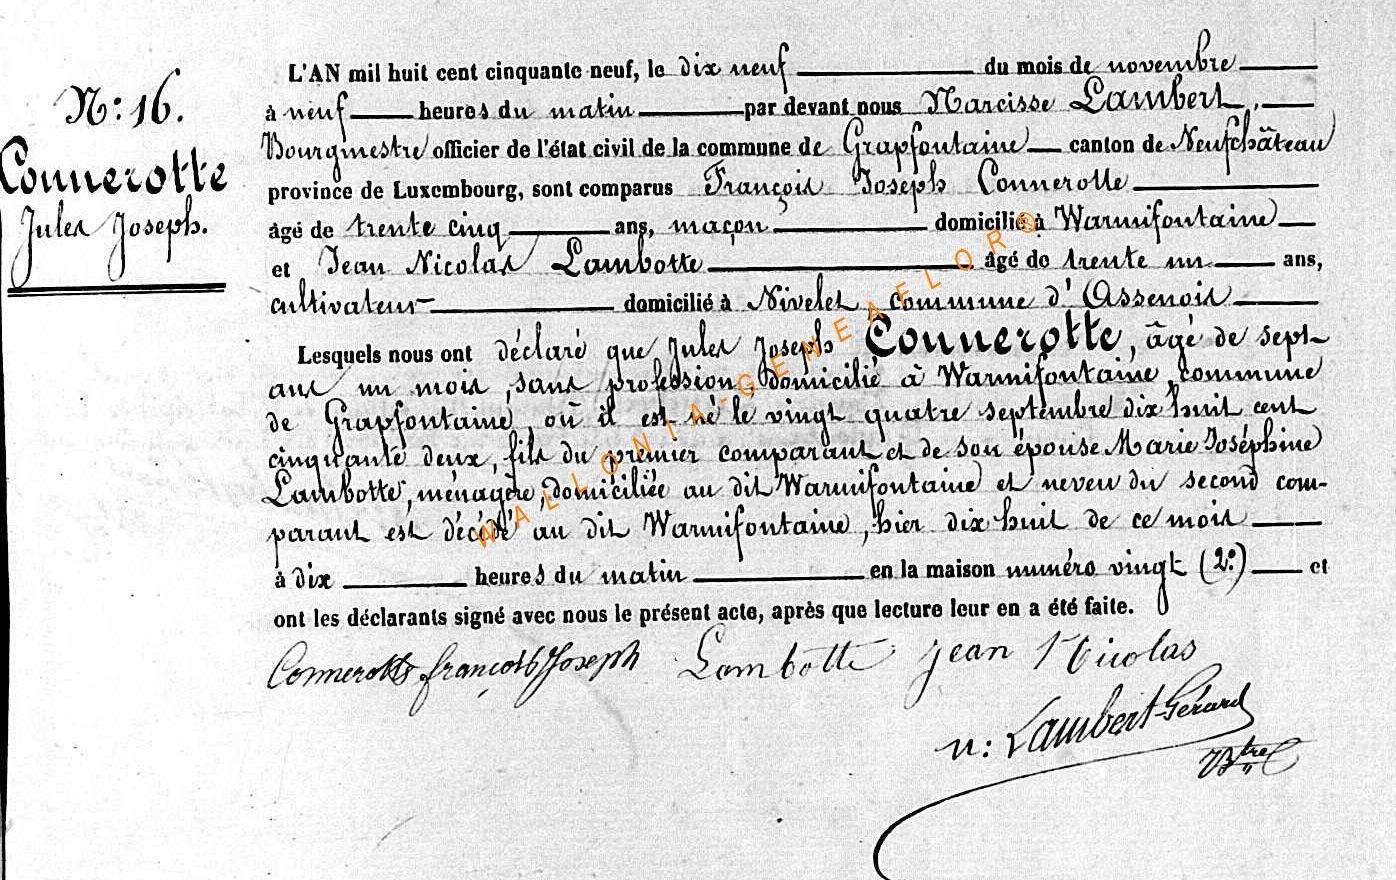 N: 16.
Connerotte
Jules Joseph.
L'AN mil huit cent cinquante neuf, le dix neuf du mois de novembre
à neuf heures du matin par devant nous Narcisse Lambert,
Bourgmestre officier de l'état civil de la commune de Grapfontaine canton de Neufchâteau
province de Luxembourg, sont comparus François Joseph Connerotte
âgé de trente cinq ans, maçon domicilié à Warmifontaine
et Jean Nicolas Lambotte âgé de trente un ans,
cultivateur domicilié à Nivelet, commune d'Assenois
Lesquels nous ont déclaré que Jules Joseph Connerotte, âgé de sept
ans un mois, sans profession, domicilié à Warmifontaine, commune
de Grapfontaine, où il est né le vingt quatre septembre dix huit cent
cinquante deux, fils du premier comparant et de son épouse Marie Joséphine
Lambotte, ménagère, domiciliée au dit Warmifontaine et neveu du second com-
parant est décédé au dit Warmifontaine, hier dix huit de ce mois
à dix heures du matin en la maison numéro vingt (2:) et
ont les déclarants signé avec nous le présent acte, après que lecture leur en a été faite.
Connerotte françois Joseph Lambotte jean Nicolas
n: Lambert-Gérard
Btre
WALLONIA-GENEAFLOR®